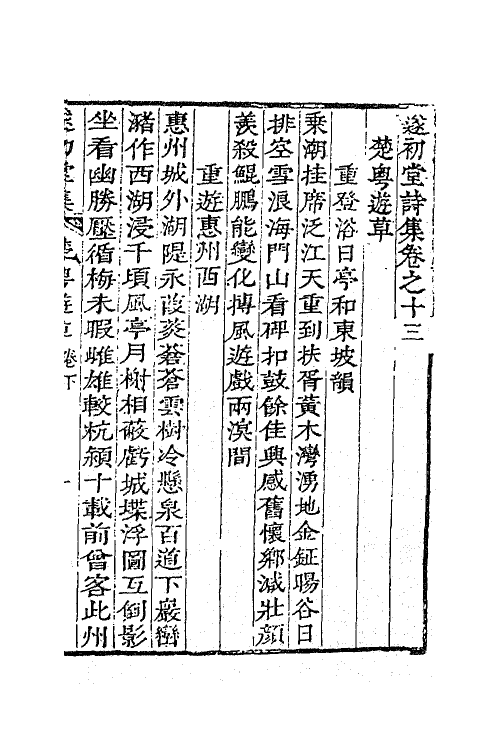 遂初堂詩集卷之十三
楚粵遊草
重登浴日亭和東坡韻
乘潮挂席泛江天重到扶胥黃木灣湧地金鉦暘谷日
排空雪浪海門山看碑扣鼓餘佳興感舊懷鄉減壯顔
羨殺鯤鵬能變化摶風遊戲兩溟間
重遊惠州西湖
惠州城外湖隄永葭菼蒼蒼雲樹冷懸泉百道下巖巒
瀦作西湖浸千頃風亭月榭相蔽虧城堞浮圖互倒影
坐看幽勝壓循梅未暇雌雄較杭潁十載前曾客此州
遂初堂集 楚粵遊草 卷下 一